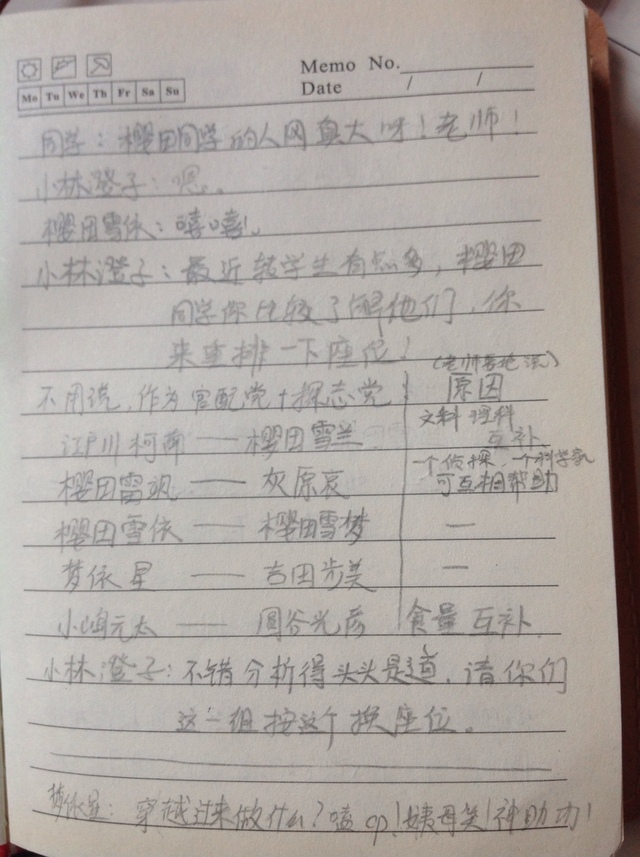 Memo No.
Date / /
Mo Tu We Th Fr Sa Su
同学：樱田同学的人网真大呀！老师！
小林澄子：嗯。
樱田雪依：嘻嘻！
小林澄子：最近转学生有点多，樱田
同学你比较了解他们，你
来重排一下座位！
(老师若她说)
不用说，作为官配党+探志党 原因
文科 理科
江户川柯南——樱田雪兰 互补
一个侦探，一个科学家
樱田雪飒——灰原哀 可互相帮助
樱田雪依——樱田雪梦 —
梦依星——吉田步美 —
小嶋元太——圆谷光彦 食量互补
小林澄子：不错分析得头头是道，请你们
这一组按这个换座位。
梦依星：穿越过来做什么？嗑cp！姨母笑！神助功！